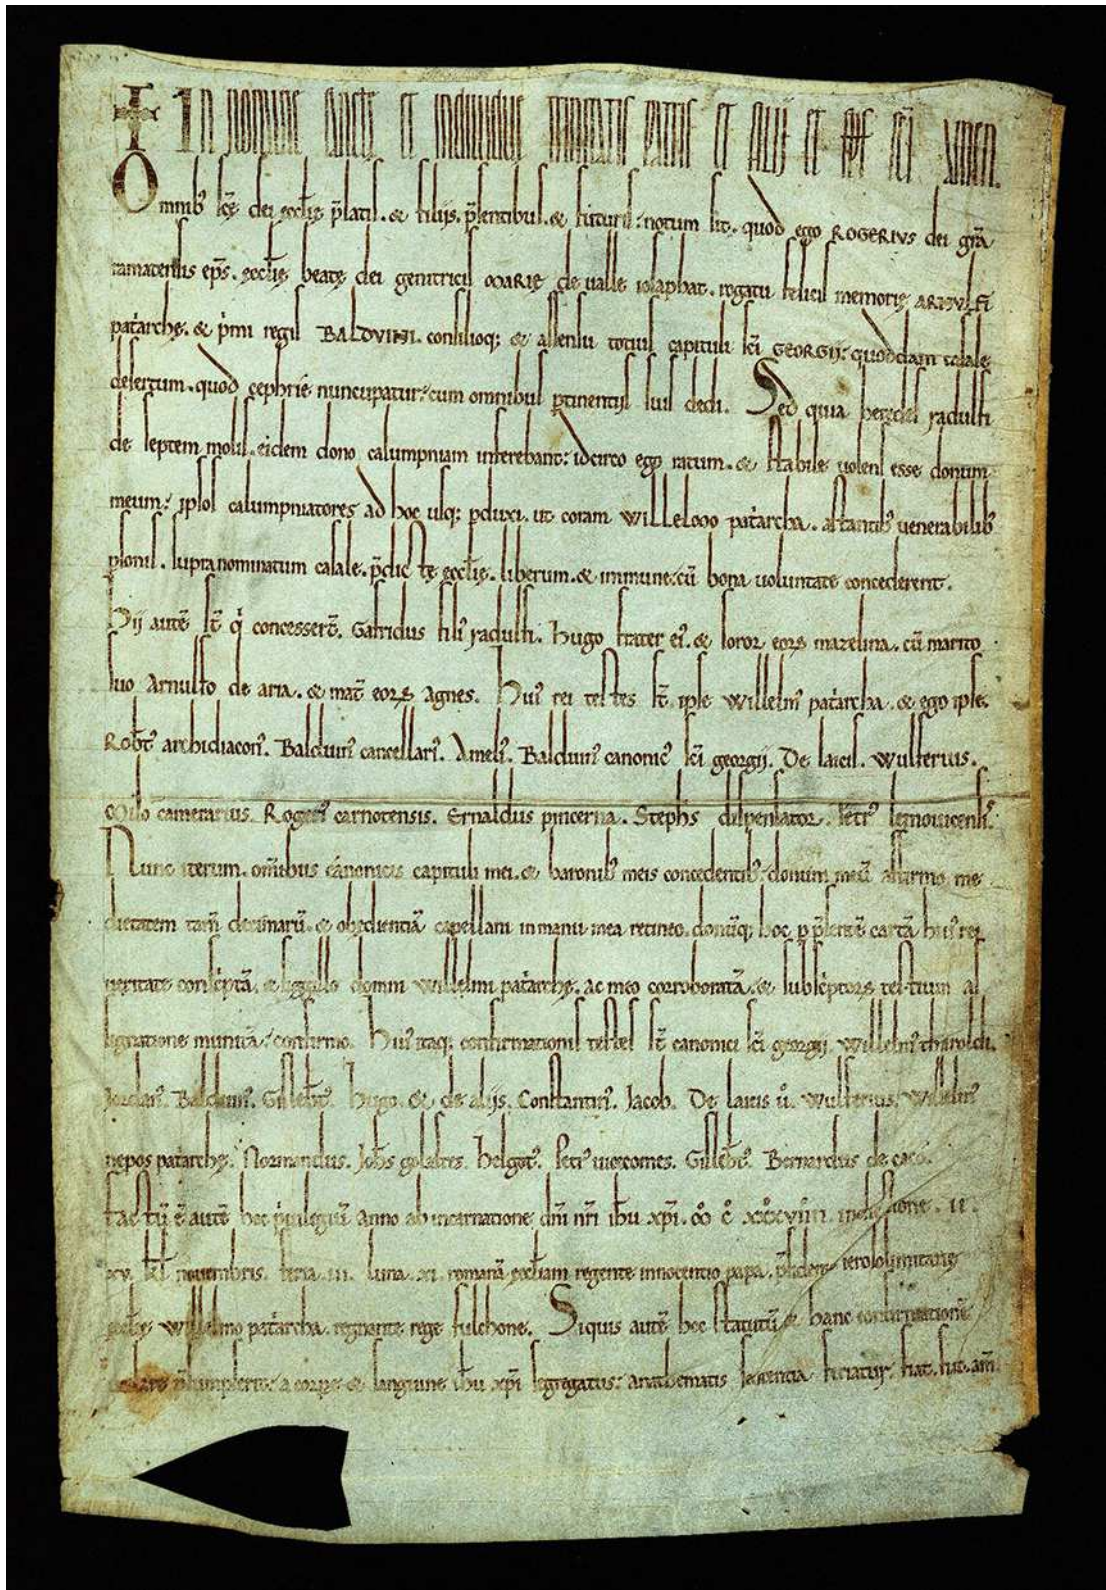 ✝ In nomine sancte et individue trinitatis patris et filii et sp̅s sc̅i amen.
Omnib᾽ sc̅ę dei ęccl̅ię p̅latis. & filijs. p̅sentibus. & futuris: notum sit. quod ego ROGERIVS dei gr̅a
ramatensis ep̅s. ęccl̅ię beatę dei genitricis MARIĘ de valle iosaphat. rogatu felicis memorię ARNVLFI
pat͛archę. & p͛mi regis BALDVINI. consilioq; & assensu totius capituli sc̅i GEORGIJ: quoddam casale
desertum. quod cephrie nuncupatur: cum omnibus ꝑtinentijs suis dedi. Sed quia heredes radulfi
de septem molis. eidem dono calumpniam inferebant: idcirco ego ratum. & stabile volens esse donum
meum: ipsos calumpniatores ad hoc usq; ꝑduxi. ut coram WILLELMO pat͛archa. astantib᾽ venerabilib᾽
ꝑsonis. supranominatum casale. p̅dictę ęccl̅ię. liberum. & immune: cu̅ bona voluntate concederent.
Hij aute̅ st̅ q͛ concessert̅. Gafridus fili᾽ radulfi. Hugo frater ei᾽. & soror eoꝝ mazelina. cu̅ marito
suo Arnulfo de aria. & mat̅ eoꝝ Agnes. Hui᾽ rei testes st̅. ipse willelm᾽ pat͛archa. & ego ipse.
Rob̅t᾽ archidiacon᾽. Balduin᾽ cancellari᾽. Ameli᾽. Balduin᾽ canonic᾽ sc̅i georgij. De laicis. wulferius.
Milo camerarius. Roger᾽ carnotensis. Ernaldus pincerna. Steph̅s dispensator. Petr᾽ lemovicensi᾽.
Nunc iterum. om̅ibus canonicis capituli mei. & baronib᾽ meis concedentib᾽: donum meu̅ affirmo. me
dietatem tam̅ decimaru̅. & obedientia̅ capellani in manu mea retineo. donu̅q; hoc ꝑ p̅sente̅ carta̅ hui᾽ rei
veritate consc͛pta̅. & sigillo domni willelmi pat͛archę. ac meo corroborata̅. & subsc͛ptoꝝ testium as
signatione munita̅: confirmo. Hui᾽ itaq; confirmationis testes st̅ canonici sc̅i georgij. willelm᾽ tharoldi.
Jordan᾽. Balduin᾽. Gilleb̅t᾽. Hugo. & de alijs. Constantin᾽. Jacob. De laicis u̅. wulferius. willelm᾽
nepos pat͛archę. Normandus. Joh̅s golafres. helgot᾽. Petr᾽ vicecomes. Gilleb̅t᾽. Bernardus de
factu̅ e̅ aute̅ hoc p͛uilegiu̅ anno ab incarnatione dn̅i nr̅i ih̅u xp̅i. indictione. ii.
xv. kl̅ novembris. feria. iii. luna. xi. romana̅ ęccl̅iam regente innocentio papa. p̅sidente ierosolimitanę
ęccl̅ię willelmo pat͛archa. regnante rege fulchone. Siquis aute̅ hoc statutu̅ & hanc confirmatione̅
p̅sumpserit: a corꝑe & sanguine ih̅u xp̅i segregatus: anathematis sententia feriatur. fiat. fiat. am̅